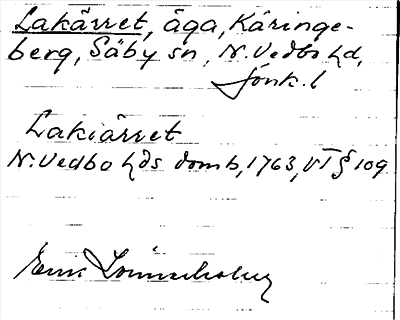 Lakärret, äga, Käringe-
berg, Säby sn, N. Vedbo hd,
Jönk. l
Lakiärret
N. Vedbo hds domb, 1763, VI § 109